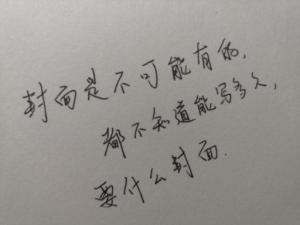 封面是不可能有的,
都不知道能写多久,
要什么封面.